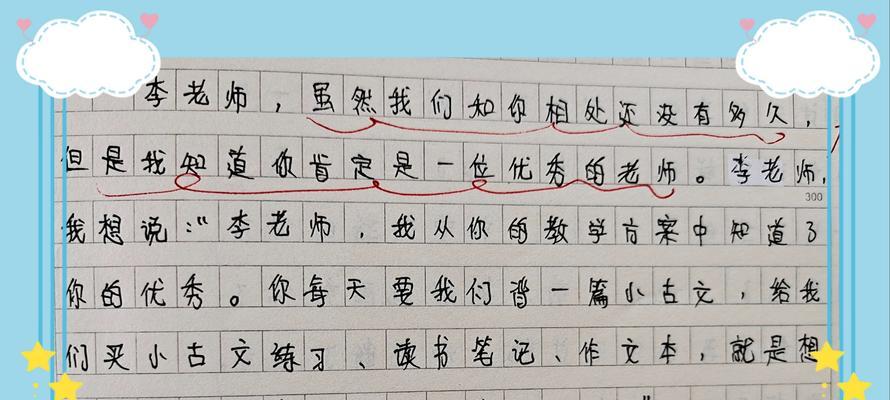 李老师，虽然我们和你相处还没有多久，
但是我知道你肯定是一位优秀的老师。李老师，
300
我想说：“李老师，我从你的教学方案中知道了
你的优秀。你每天要我们背一篇小古文，给我
们买小古文练习、读书笔记、作文本，就是想